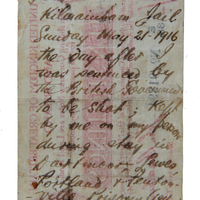 Kilmainham Jail
Sunday May 21 - 1916
the day after I
was sentenced by
the British Government
to be shot; Kept
by me on my person
during stay in
Dartmoor - Lewes
Portland & Penton-
ville prisons